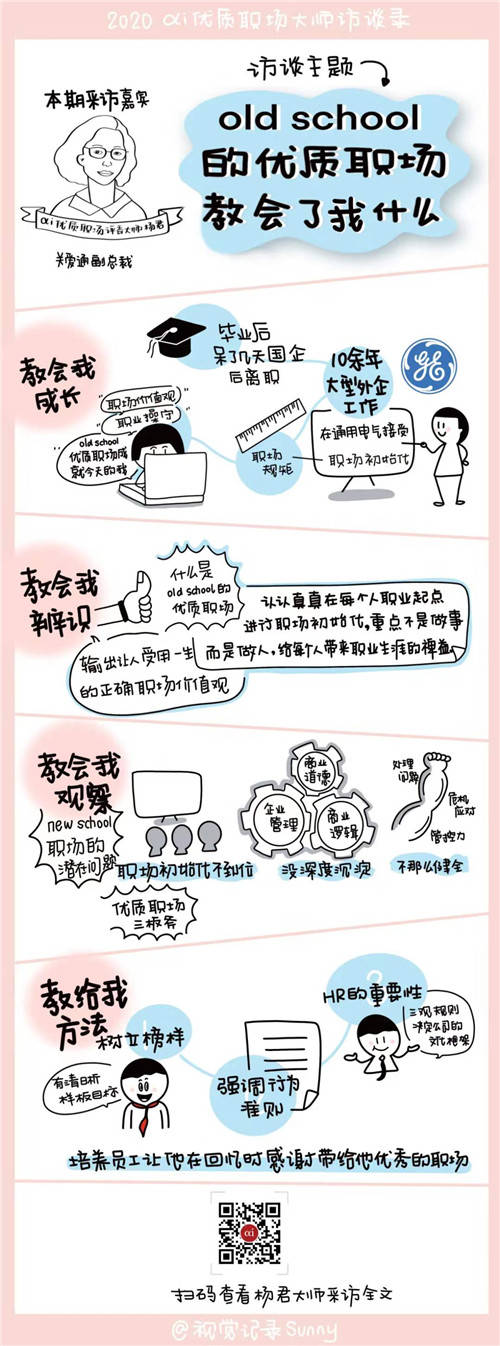 2020 αi优质职场大师访谈录
访谈主题
本期采访嘉宾
old school
的优质职场
教会了我什么
αi优质职场谭吉大师杨君
关爱通副总裁
教会我
成长
毕业后
呆了几天国企
后离职
10余年
大型外企
工作
GE
职场价值观
职业操守
old school
优质职场成
就今天的我
职场
规矩
在通用电气接受
职场初始化
教会我
辨识
什么是
old school的
优质职场
认认真真在每个人职业起点
进行职场初始化,重点不是做事
而是做人,给每个人带来职业生涯的裨益
输出让人受用一生
的正确职场价值观
教会我
观察
new school
职场的
潜在问题
职场初始化不到位
商业
道德
企业
管理
商业
逻辑
没深度沉淀
处理
问题
危机
应对
管控力
不那么健全
优质职场
三板斧
教给我
方法
树立榜样
有清晰
样板目标
强调行为
准则
HR的重要性
三观规则
决定公司的
文化框架
培养员工让他在回忆时感谢带给他优秀的职场
αi
扫码查看杨君大师采访全文
@视觉记录Sunny